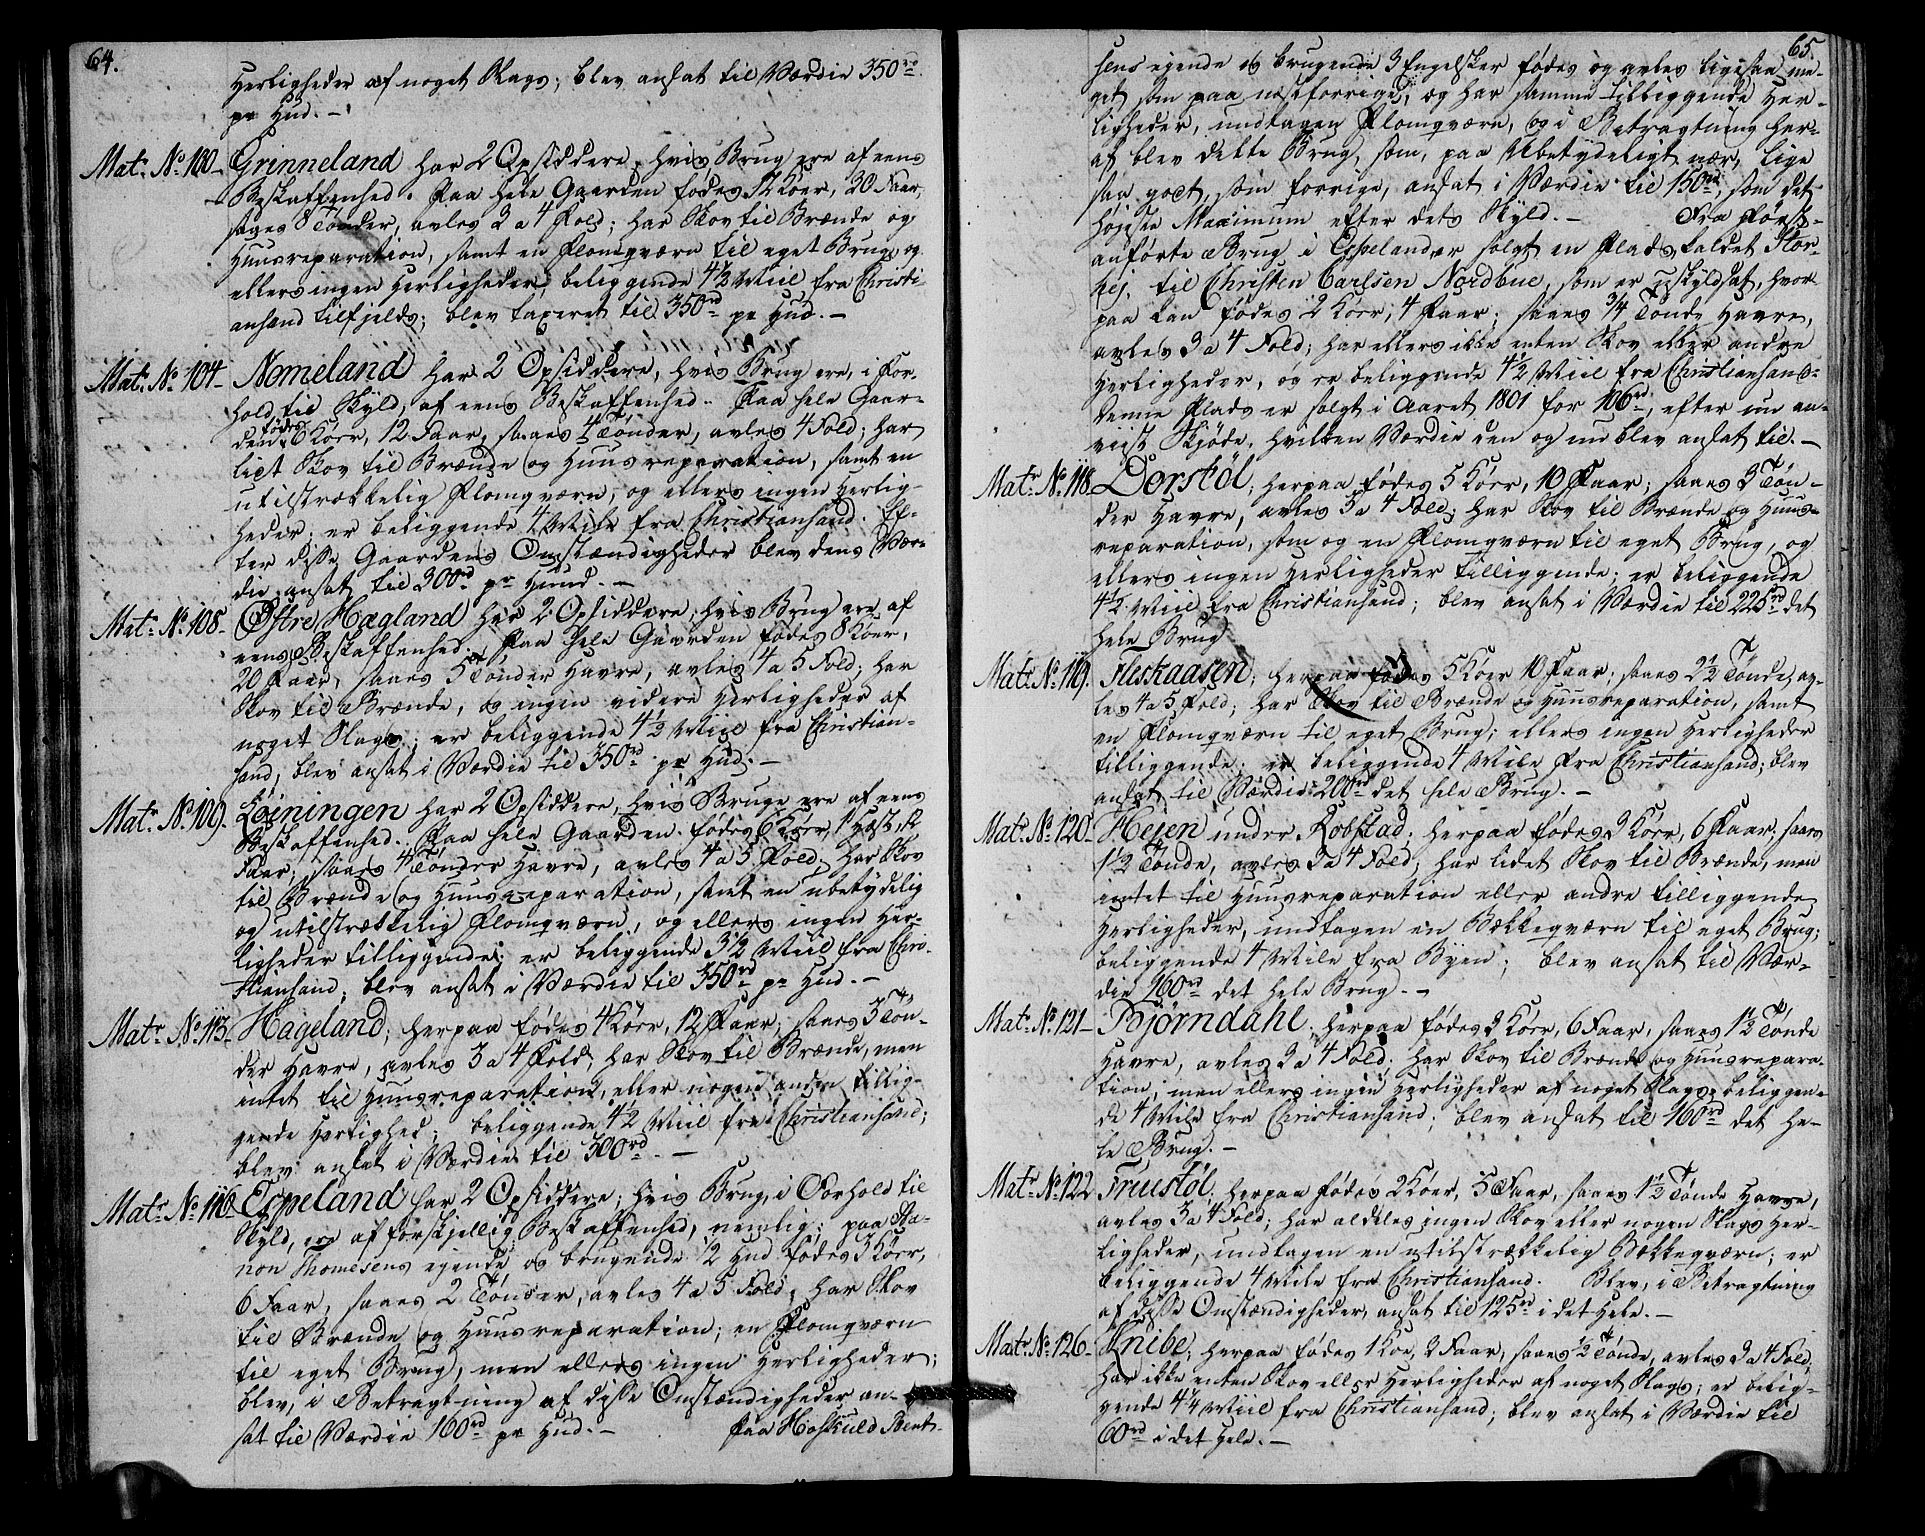 64.
Herligheder af noget Slags; blev ansat til Værdie 350 rd.
pr Hud. –
Matr. No. 100 – Grinneland har 2 Opsiddere, hvis Brug ere af eens
Beskaffenhed. Paa hele Gaarden fødes 12 Köer, 30 Faar,
saaes 8 Tønder, avles 3 a 4 Fold; har Skov til Brænde og
Huusreparation, samt en Flomqværn til eget Brug, og
ellers ingen Herligheder, beliggende 4½ Miil fra Christi-
ansand tilfjelds; blev taxeret til 350 rd pr Hud. –
Matr. No. 104 – Nomeland har 2 Opsiddere, hvis Brug ere, i For-
hold til Skyld, af eens Beskaffenhed. Paa hele Gaar-
den fødes 6 Köer, 12 Faar, saaes 4 Tønder, avles 4 Fold; har
lidt Skov til Brænde og Huusreparation, samt en
utilstrækkelig Flomqværn, og ellers ingen Herlig-
heder; er beliggende 4 Mile fra Christiansand. Ef-
ter disse Gaardens Omstændigheder blev dens Vær-
die ansat til 300 rd pr Huud. –
Matr. No. 108 – Østre Hægland har 2 Opsiddere, hvis Brug ere af
eens Beskaffenhed. Paa hele Gaarden fødes 8 Köer,
20 Faar, saaes 5 Tønder Havre, avles 4 a 5 Fold; har
Skov til Brænde, og ingen videre Herligheder af
noget Slags; er beliggende 4½ Miil fra Christian-
sand, blev ansat i Værdie til 350 rd pr Hud. –
Matr. No. 109. Löiningen har 2 Opsiddere, hvis Bruge ere af eens
Beskaffenhed. Paa hele Gaarden fødes 6 Köer, 1 Hest, 12
Faar, saaes 4 Tønder Havre, avles 4 a 5 Fold; har Skov
til Brænde og Huusreparation, samt en ubetydelig
og utilstrækkelig Flomqværn, og ellers ingen Her-
ligheder tilliggende; er beliggende 3½ Miil fra Chri-
stiansand; blev ansat i Værdie til 350 rd pr Hud. –
Matr. No. 113 – Hageland; herpaa fødes 4 Köer, 12 Faar, saaes 3 Tøn-
der Havre, avles 3 a 4 Fold, har Skov til Brænde, men
intet til Huusreparation, eller nogen anden tillig-
gende Herlighed; beliggende 4½ Miil fra Christiansand;
blev ansat i Værdie til 300 rd. –
Matr. No. 116 – Espeland har 2 Opsiddere; hvis Brug, i Forhold til
Skyld, ere af forskjellig Beskaffenhed, nemlig; paa Sa-
non Thomesens ejende og brugende ½ Hud fødes 3 Köer,
6 Faar, saaes 2 Tønder, avles 4 a 5 Fold, har Skov
til Brænde og Huusreparation; en Flomqværn
til eget Brug, men ellers ingen Herligheder;
blev, i Betragtning af disse Omstændigheder an-
sat til Værdie 160 rd pr Hud. – Paa Høskuld Bent-
65.
sens ejende og brugende 3 Engelsker fødes og avles ligesaa me-
get som paa næstforrige, og har samme tilliggende Her-
ligheder, undtagen Flomqværn, og i Betragtning her-
af blev dette Brug, som, paa Ubetydeligt nær, lige
saa godt, som forrige, ansat i Værdie til 150 rd, som det
høieste Maximum efter dets Skyld. – Fra først-
anførte Brug i Espeland er solgt en Plads kaldet Stor-
hej, til Christen Carlsen Nordbue, som er uskyldsat, hvor-
paa kan fødes 2 Köer, 4 Faar; saaes ¾ Tønde Havre,
avles 3 a 4 Fold; har ellers ikke enten Skov eller andre
Herligheder, og er beliggende 4½ Miil fra Christiansand.
Denne Plads er solgt i Aaret 1801 for 106 rd, efter nu an-
viist Skjøde, hvilken Værdie den og nu blev ansat til. –
Matr. No. 118. Dorstøl; herpaa fødes 5 Köer, 10 Faar; saaes 3 Tøn-
der Havre, avles 3 a 4 Fold; har Skov til Brænde og Huus-
reparation, som og en Flomqværn til eget Brug, og
ellers ingen Herligheder tilliggende; er beliggende
4½ Miil fra Christiansand; blev ansat i Værdie til 225 rd det
hele Brug
Matr. No. 119. Fleskaasen; herpaa fødes 5 Köer 10 Faar, saaes 2½ Tønde, av-
les 4 a 5 Fold; har Skov til Brænde og Huusreparation, samt
en Flomqværn til eget Brug; ellers ingen Herligheder
tilliggende; er beliggende 4 Mile fra Christiansand; blev
ansat til Værdie 200 rd det hele Brug. –
Matr. No. 120 – Hejen under Robstad; herpaa fødes 3 Köer, 6 Faar, saaes
1½ Tønde, avles 3 a 4 Fold; har lidet Skov til Brænde, men
intet til Huusreparation eller andre tilliggende
Herligheder, undtagen en Bækkeqværn til eget Brug;
beliggende 4 Mile fra Byen; blev ansat til Vær-
die 160 rd det hele Brug. –
Matr. No. 121 – Bjørndahl, herpaa fødes 3 Köer, 6 Faar, saaes 1½ Tønde
Havre, avles 3 a 4 Fold; har Skov til Brænde og Huusrepara-
tion, men ellers ingen Herligheder af noget Slags; beliggen-
de 4 Mile fra Christiansand; blev ansat til 160 rd det he-
le Brug. –
Matr. No. 122 Truustøl; herpaa fødes 2 Köer, 5 Faar, saaes 1½ Tønde Havre,
avles 3 a 4 Fold; har aldeles ingen Skov eller nogen Slags Her-
ligheder, undtagen en utilstrækkelig Bækkeqværn; er
beliggende 4 Mile fra Christiansand. Blev, i Betragtning
af disse Omstændigheder, ansat til 125 rd i det Hele. –
Matr. No. 126 – Knibe, herpaa fødes 1 Koe, 2 Faar, saaes ½ Tønde, avles 3 a 4 Fold;
har ikke enten Skov eller Herligheder af noget Slags; er belig-
gende 4¼ Miil fra Christiansand; blev ansat i Værdie til
60 rd i det Hele. –